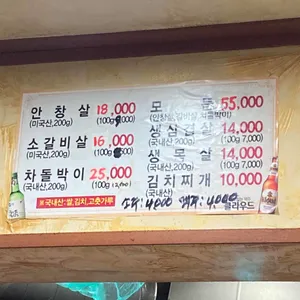 안창살 18,000
(미국산,200g) (100g 9,000)
소갈비살 16,000
(미국산,200g) (100g 8,000)
차돌박이 25,000
(국내산,200g)
※국내산:쌀,김치,고춧가루
모둠 55,000
생삼겹살 14,000
(국내산,200g) (100g 7,000)
생목살 14,000
(국내산,200g) (100g 7,000)
김치찌개 10,000
(국내산)
소주:4000 맥주:4,000
클라우드